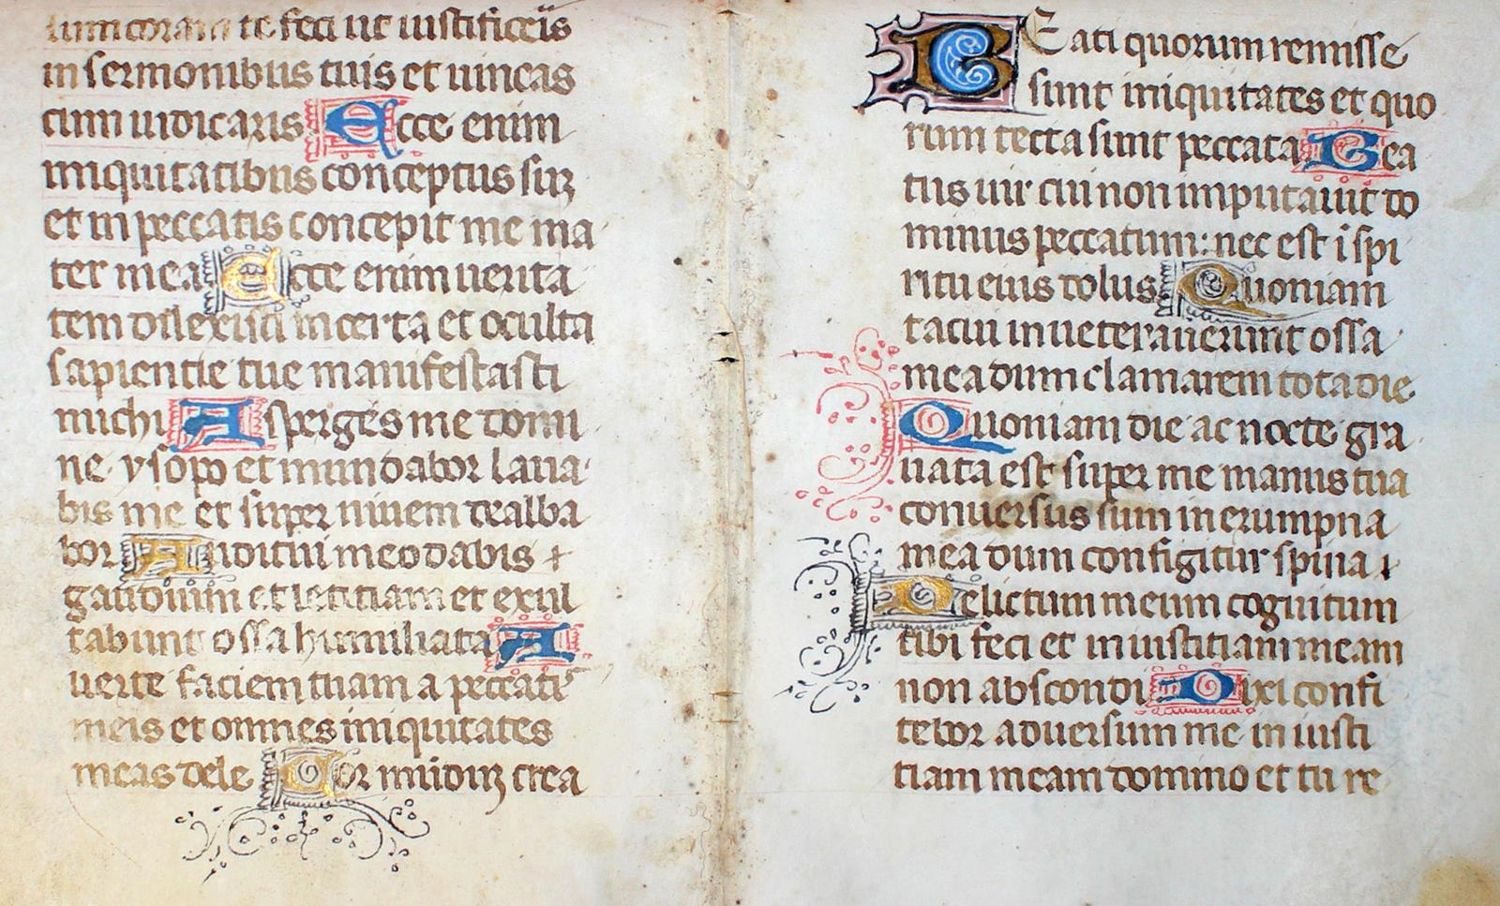 lum coram te feci ut iustificeris
in sermonibus tuis et uincas
cum iudicaris Ecce enim
iniquitatibus conceptus suʒ
et in peccatis concepit me ma
ter mea Ecce enim uerita
tem dilexisti incerta et oculta
sapientie tue manifestasti
michi Asperges me domi
ne ysopo et mundabor laua
bis me et super niuem dealba
bor Auditui meo dabis
gaudium et letitiam et exul
tabunt ossa humiliata A
uerte faciem tuam a peccatis
meis et omnes iniquitates
meas dele Cor mundum crea
BEati quorum remisse
sunt iniquitates et quo
rum tecta sunt peccata Bea
tus uir cui non imputauit do
minus peccatum: nec est i spi
ritu eius dolus Quoniam
tacui inueterauerunt ossa
mea dum clamarem tota die
Quoniam die ac nocte gra
uata est super me manus tua
conuersus sum in erumpna
mea dum configitur spina
Delictum meum cognitum
tibi feci et iniustitiam meam
non abscondi Dixi confi
tebor aduersum me iniusti
tiam meam domino et tu re